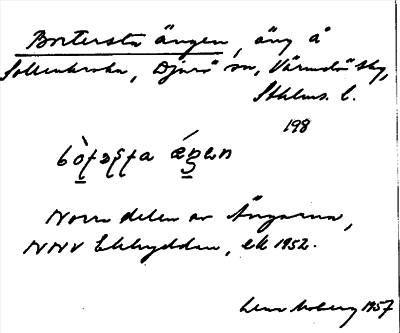 Bortersta ängen, äng å
Sollenkroka, Djurö sn, Värmdö skg,
Sthlms. l.
198
Norra delen av Ängarna,
NNV Ekbydden, ek 1952.
Lena Moberg 1957